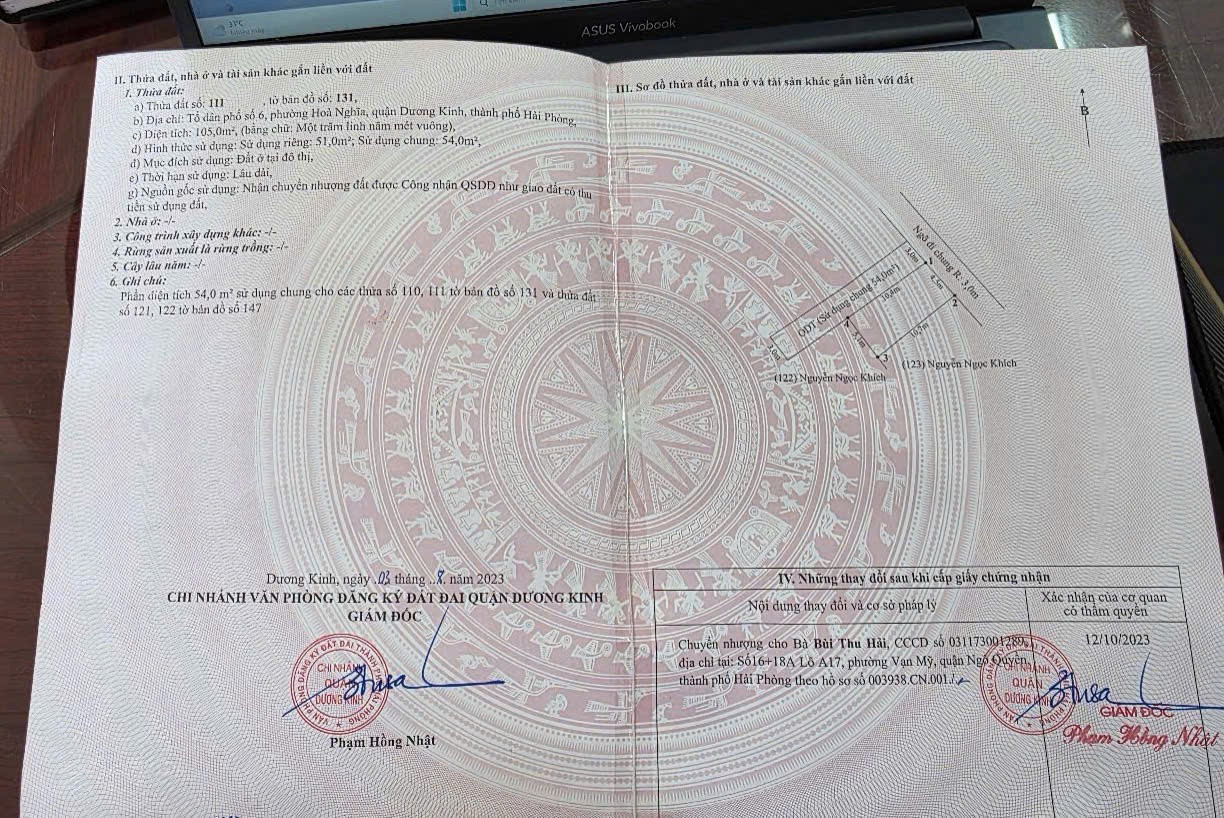 31°C
ASUS Vivobook
II. Thửa đất, nhà ở và tài sản khác gắn liền với đất
1. Thửa đất:
a) Thửa đất số: 111 , tờ bản đồ số: 131,
b) Địa chỉ: Tổ dân phố số 6, phường Hoà Nghĩa, quận Dương Kinh, thành phố Hải Phòng,
c) Diện tích: 105,0m², (bằng chữ: Một trăm linh năm mét vuông),
d) Hình thức sử dụng: Sử dụng riêng: 51,0m²; Sử dụng chung: 54,0m²,
đ) Mục đích sử dụng: Đất ở tại đô thị,
e) Thời hạn sử dụng: Lâu dài,
g) Nguồn gốc sử dụng: Nhận chuyển nhượng đất được Công nhận QSDĐ như giao đất có thu
tiền sử dụng đất,
2. Nhà ở: -/-
3. Công trình xây dựng khác: -/-
4. Rừng sản xuất là rừng trồng: -/-
5. Cây lâu năm: -/-
6. Ghi chú:
Phần diện tích 54,0 m² sử dụng chung cho các thửa số 110, 111 tờ bản đồ số 131 và thửa đất
số 121, 122 tờ bản đồ số 147
Dương Kinh, ngày 03 tháng 8 năm 2023
CHI NHÁNH VĂN PHÒNG ĐĂNG KÝ ĐẤT ĐAI QUẬN DƯƠNG KINH
GIÁM ĐỐC
CHI NHÁNH
QUẬN
DƯƠNG KINH
Phạm Hồng Nhật
III. Sơ đồ thửa đất, nhà ở và tài sản khác gắn liền với đất
B
Ngõ đi chung R: 5,0m
3,0m
1
2
ODT (Sử dụng chung 54,0m²)
4
3
3,0m
(122) Nguyễn Ngọc Khích
(123) Nguyễn Ngọc Khích
IV. Những thay đổi sau khi cấp giấy chứng nhận
Nội dung thay đổi và cơ sở pháp lý
Xác nhận của cơ quan
có thẩm quyền
Chuyển nhượng cho Bà Bùi Thu Hải, CCCD số 031173001289,
địa chỉ tại: Số16+18A Lô A17, phường Vạn Mỹ, quận Ngô Quyền,
thành phố Hải Phòng theo hồ sơ số 003938.CN.001./.
12/10/2023
CHI NHÁNH
QUẬN
DƯƠNG KINH
GIÁM ĐỐC
Phạm Hồng Nhật